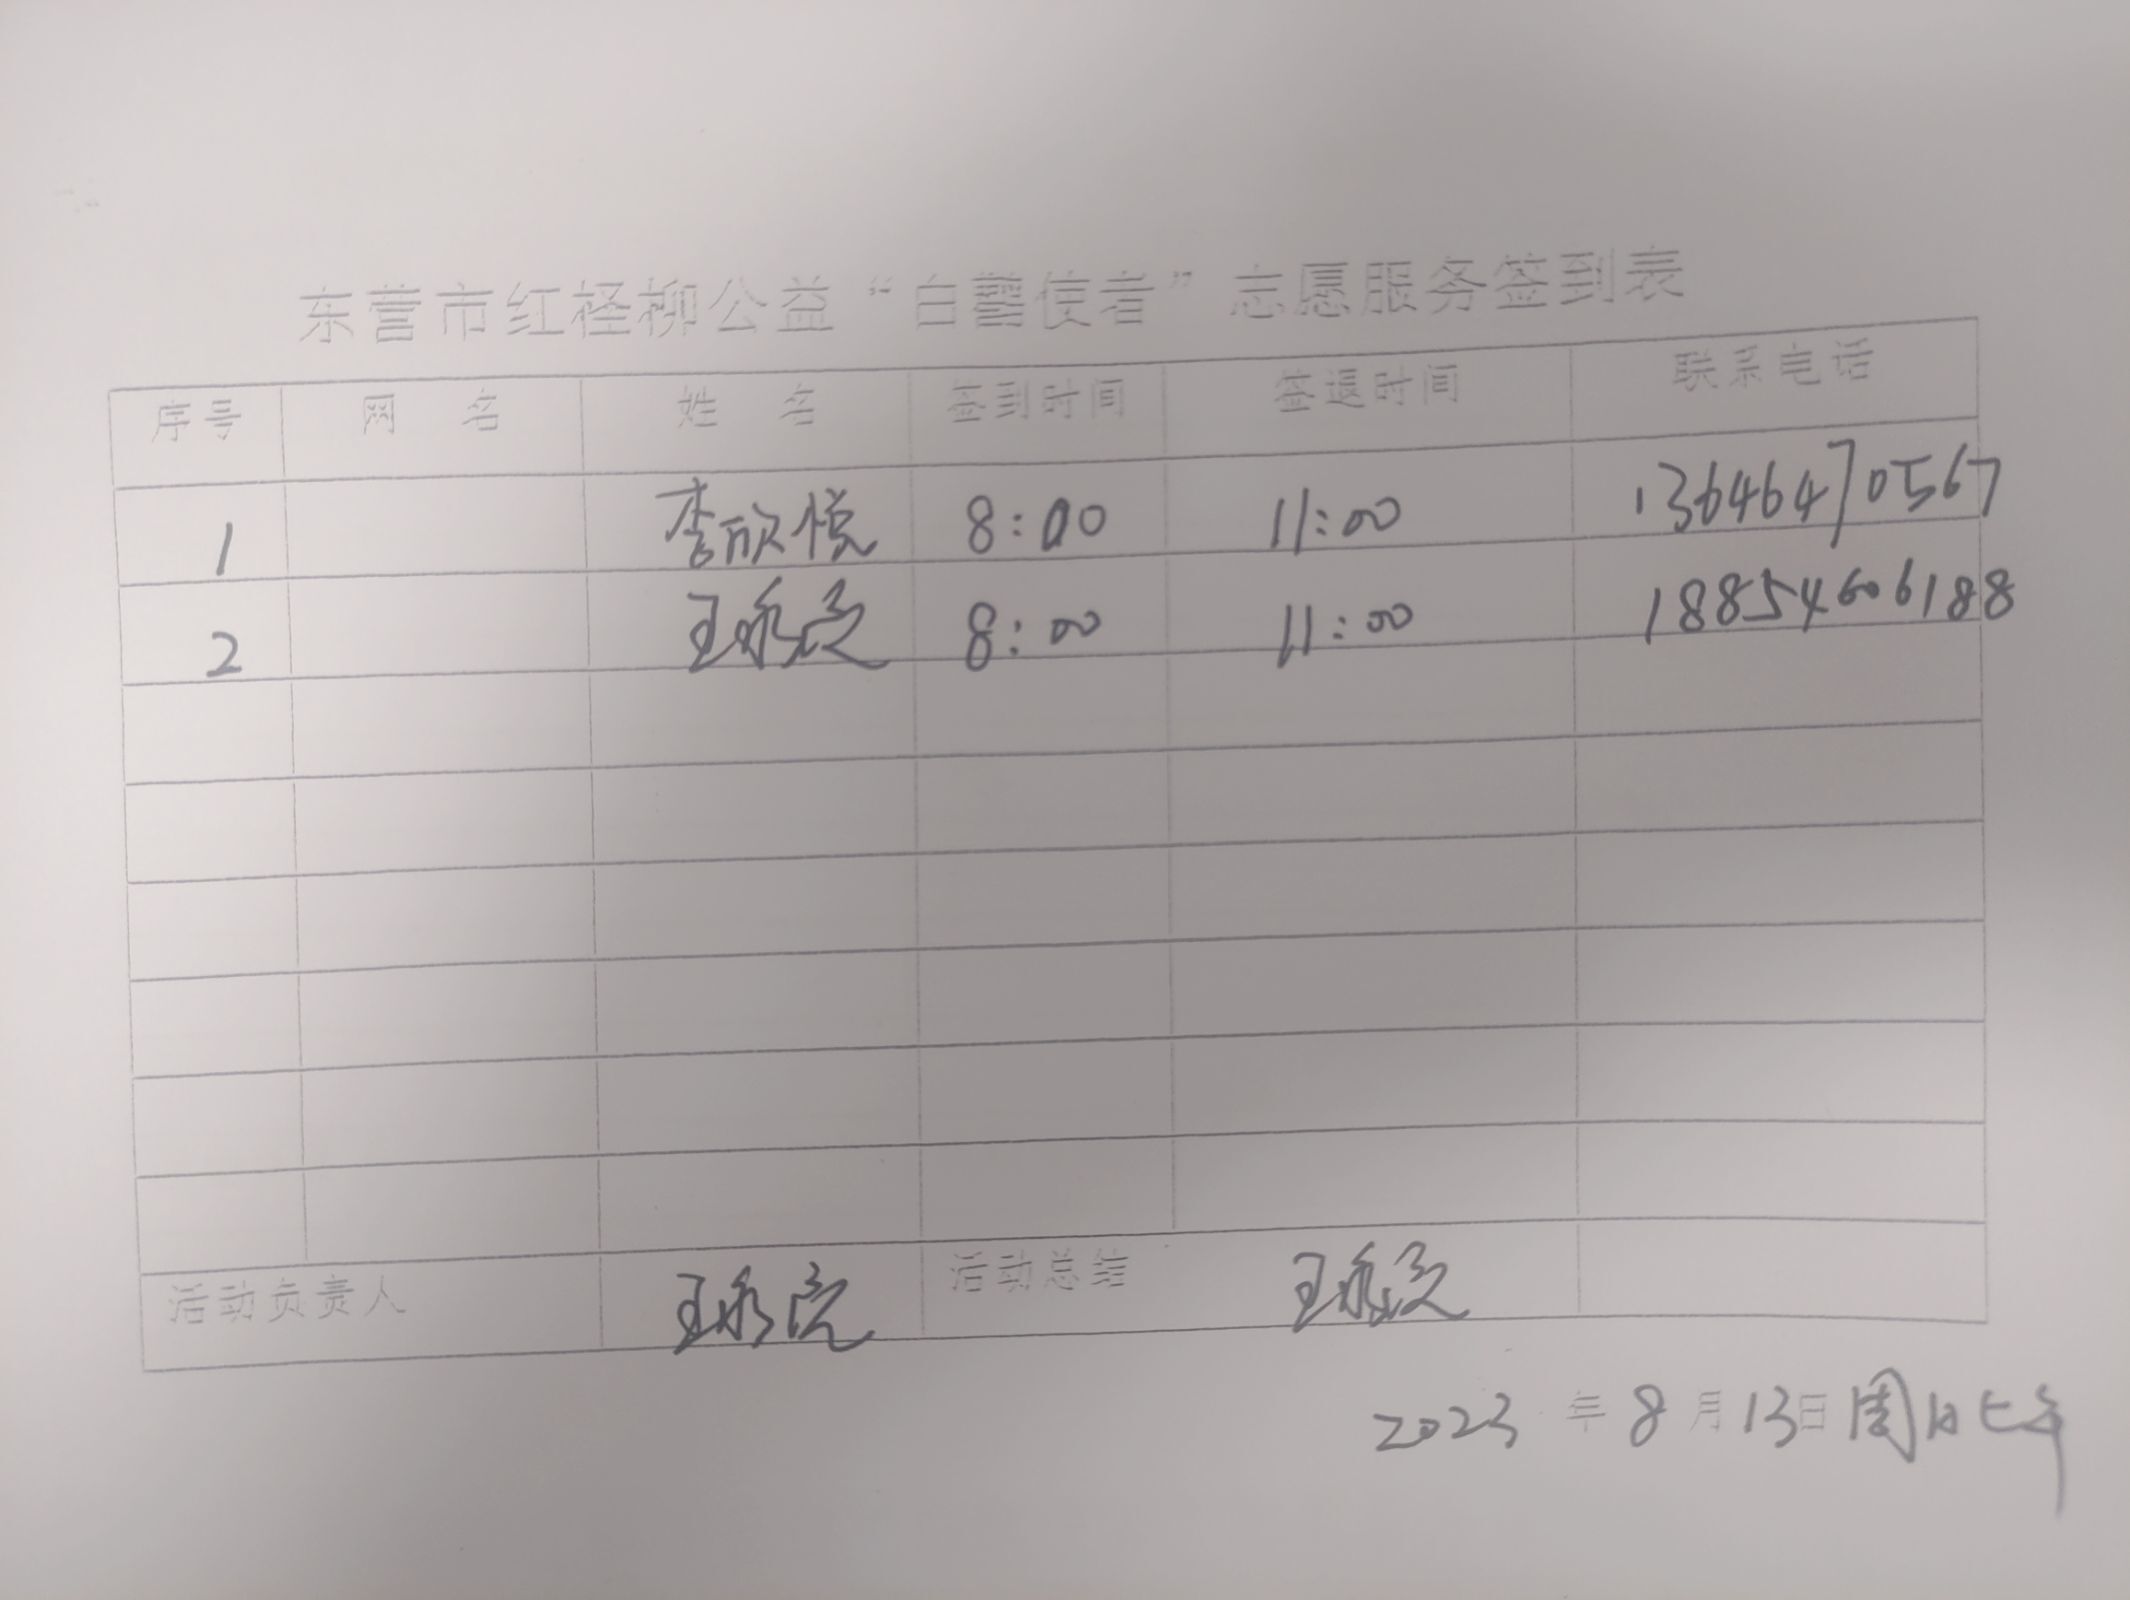 东营市红柽柳公益“白鹭使者”志愿服务签到表
序号 网 名 姓 名 签到时间 签退时间 联系电话
1 李欣悦 8:00 11:00 13646470567
2 王永 8:00 11:00 18854606188
活动负责人 王永 活动总结 王永
2023 年 8 月 13 日 周日上午